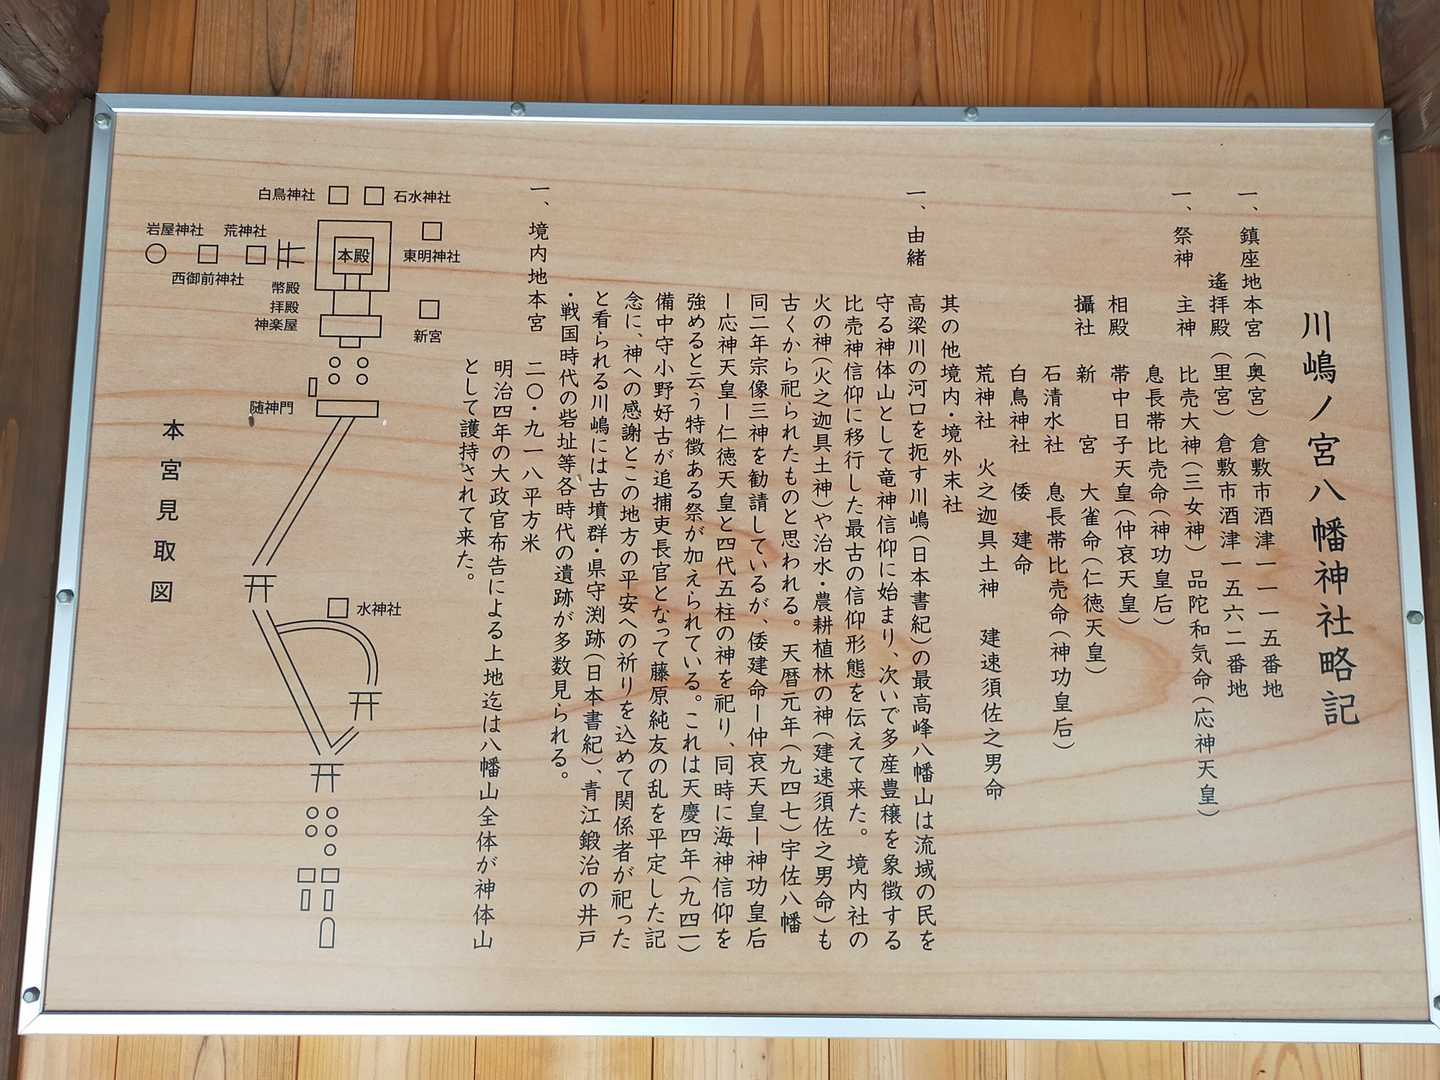 川嶋ノ宮八幡神社略記
一、鎮座地本宮（奥宮）倉敷市酒津一一一五番地
遙拝殿（里宮）倉敷市酒津一五六二番地
一、祭神 主神 比売大神（三女神）品陀和気命（応神天皇）
息長帯比売命（神功皇后）
相殿 帯中日子天皇（仲哀天皇）
攝社 新宮 大雀命（仁徳天皇）
石清水社 息長帯比売命（神功皇后）
白鳥神社 倭建命
荒神社 火之迦具土神 建速須佐之男命
其の他境内・境外末社
一、由緒 高梁川の河口を扼す川嶋（日本書紀）の最高峰八幡山は流域の民を
守る神体山として竜神信仰に始まり、次いで多産豊穣を象徴する
比売神信仰に移行した最古の信仰形態を伝えて来た。境内社の
火の神（火之迦具土神）や治水・農耕植林の神（建速須佐之男命）も
古くから祀られたものと思われる。天暦元年（九四七）宇佐八幡
同二年宗像三神を勧請しているが、倭建命ー仲哀天皇ー神功皇后
ー応神天皇ー仁徳天皇と四代五柱の神を祀り、同時に海神信仰を
強めると云う特徴ある祭が加えられている。これは天慶四年（九四一）
備中守小野好古が追捕吏長官となって藤原純友の乱を平定した記
念に、神への感謝とこの地方の平安への祈りを込めて関係者が祀った
と看られる川嶋には古墳群・県守渕跡（日本書紀）、青江鍛治の井戸
・戦国時代の砦址等各時代の遺跡が多数見られる。
一、境内地本宮 二〇・九一八平方米
明治四年の大政官布告による上地迄は八幡山全体が神体山
として護持されて来た。
白鳥神社
石水神社
岩屋神社
荒神社
西御前神社
本殿
東明神社
幣殿
拝殿
神楽屋
新宮
随神門
水神社
本宮見取図